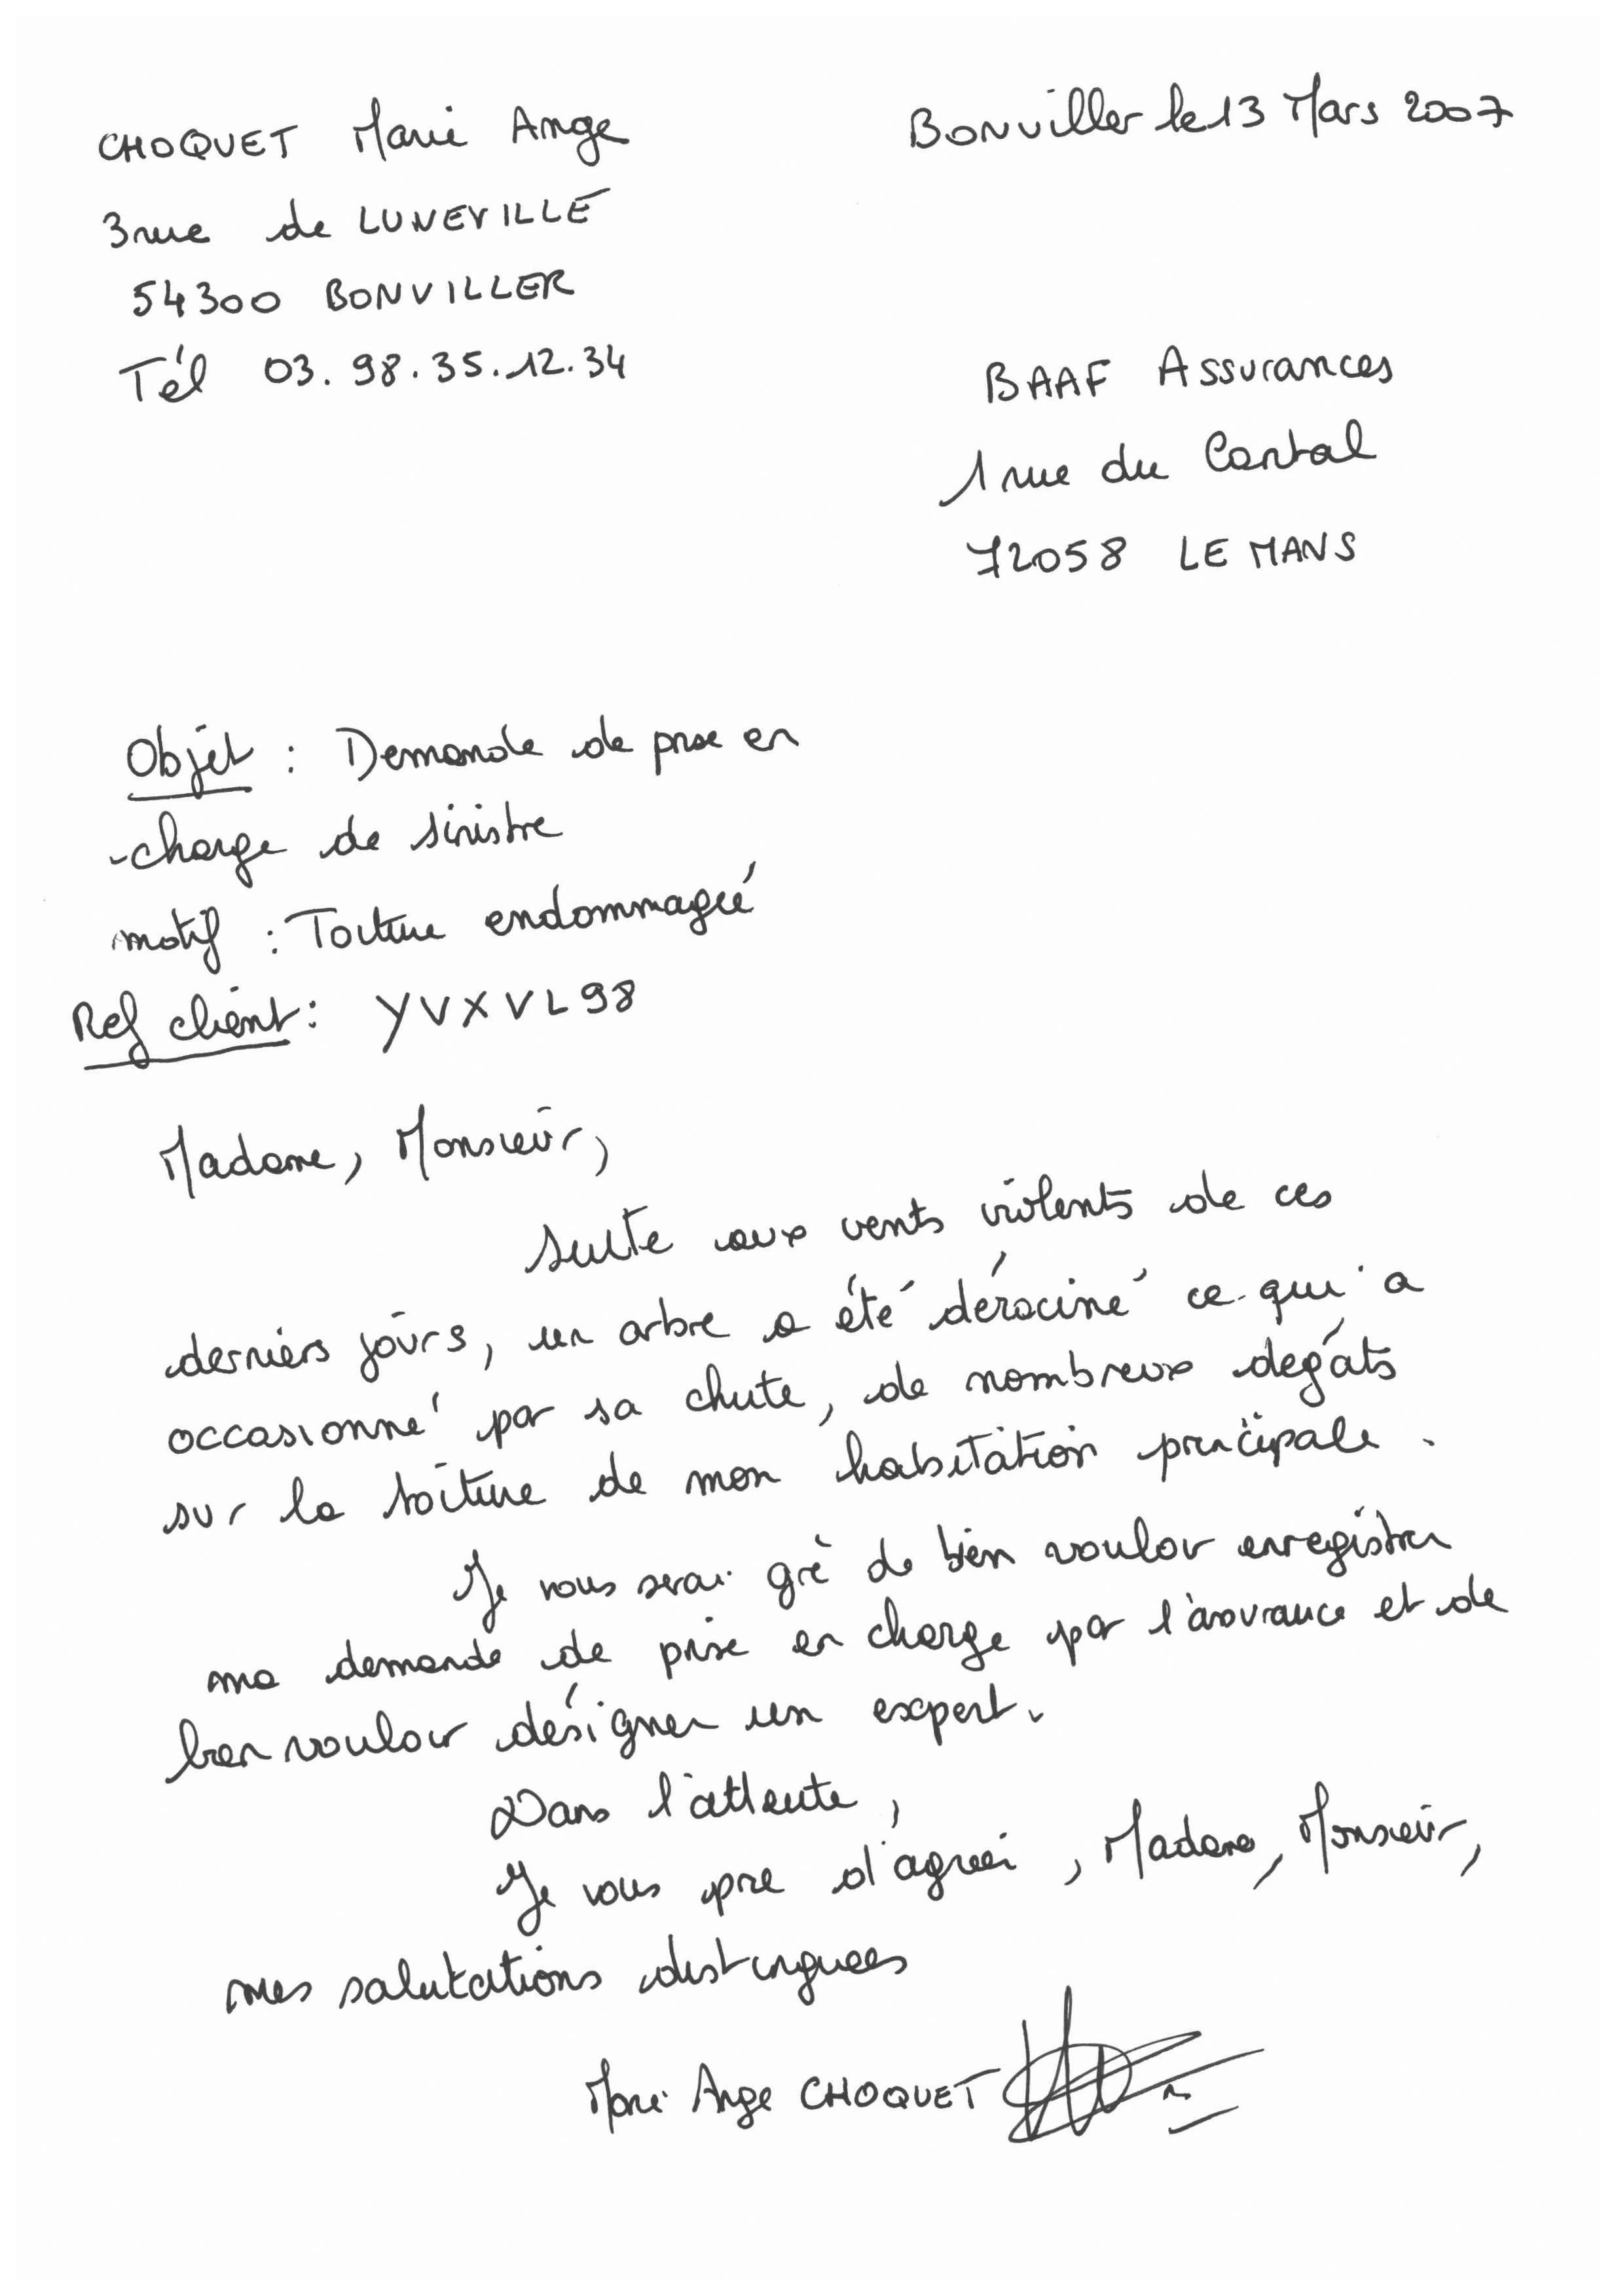 CHOQUET Marie Ange
Bonviller le 13 Mars 2007
3 rue de LUNEVILLE
54300 BONVILLER
Tél 03.98.35.12.34
BAAF Assurances
1 rue du Cantal
72058 LE MANS
Objet : Demande de prise en
charge de sinistre
motif : Toiture endommagée
Ref client : YVXVL98
Madame, Monsieur,
suite aux vents violents de ces
derniers jours, un arbre a été déraciné ce qui a
occasionné par sa chute, de nombreux degâts
sur la toiture de mon habitation principale.
Je vous serai gré de bien vouloir enregistrer
ma demande de prise en charge par l'assurance et de
bien vouloir désigner un expert.
Dans l'attente,
Je vous prie d'agréer, Madame, Monsieur,
mes salutations distinguées
Marie Ange CHOQUET